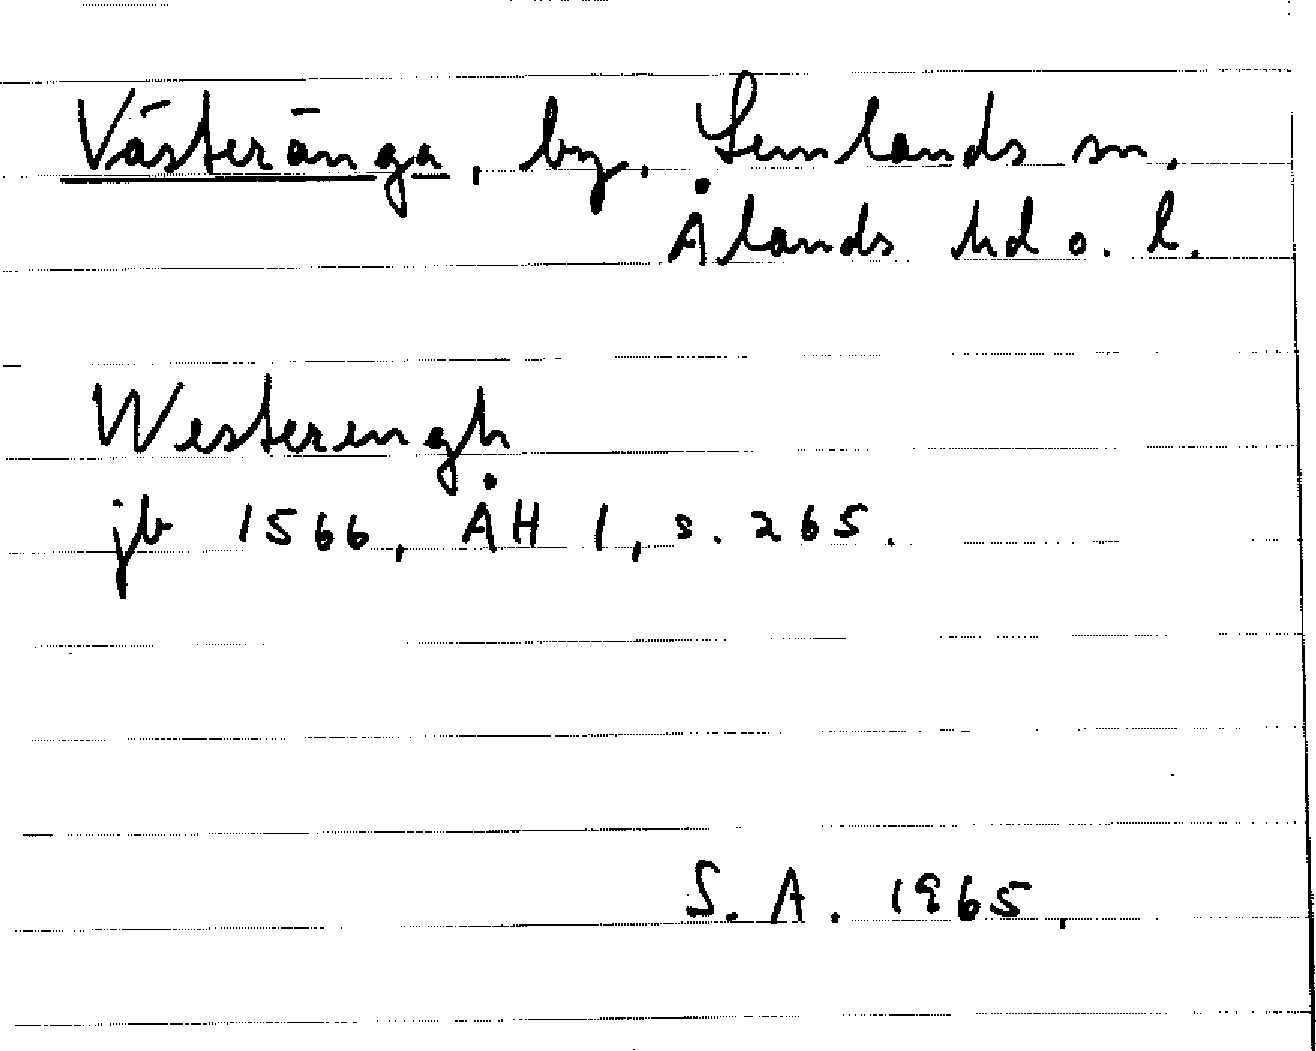 Västeränga, by, Lemlands sn,
Ålands hd o. l.
Westerengh
jb 1566, ÅH 1, s. 265.
S. A. 1965.